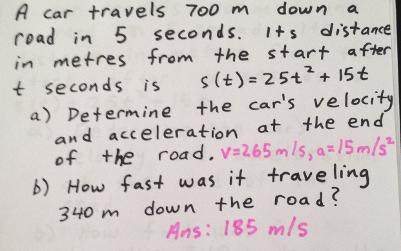 A car travels 700 m down a
road in 5 seconds. Its distance
in metres from the start after
t seconds is s(t) = 25t² + 15t
a) Determine the car's velocity
and acceleration at the end
of the road. v=265 m/s, a=15m/s²
b) How fast was it traveling
340 m down the road?
Ans: 185 m/s